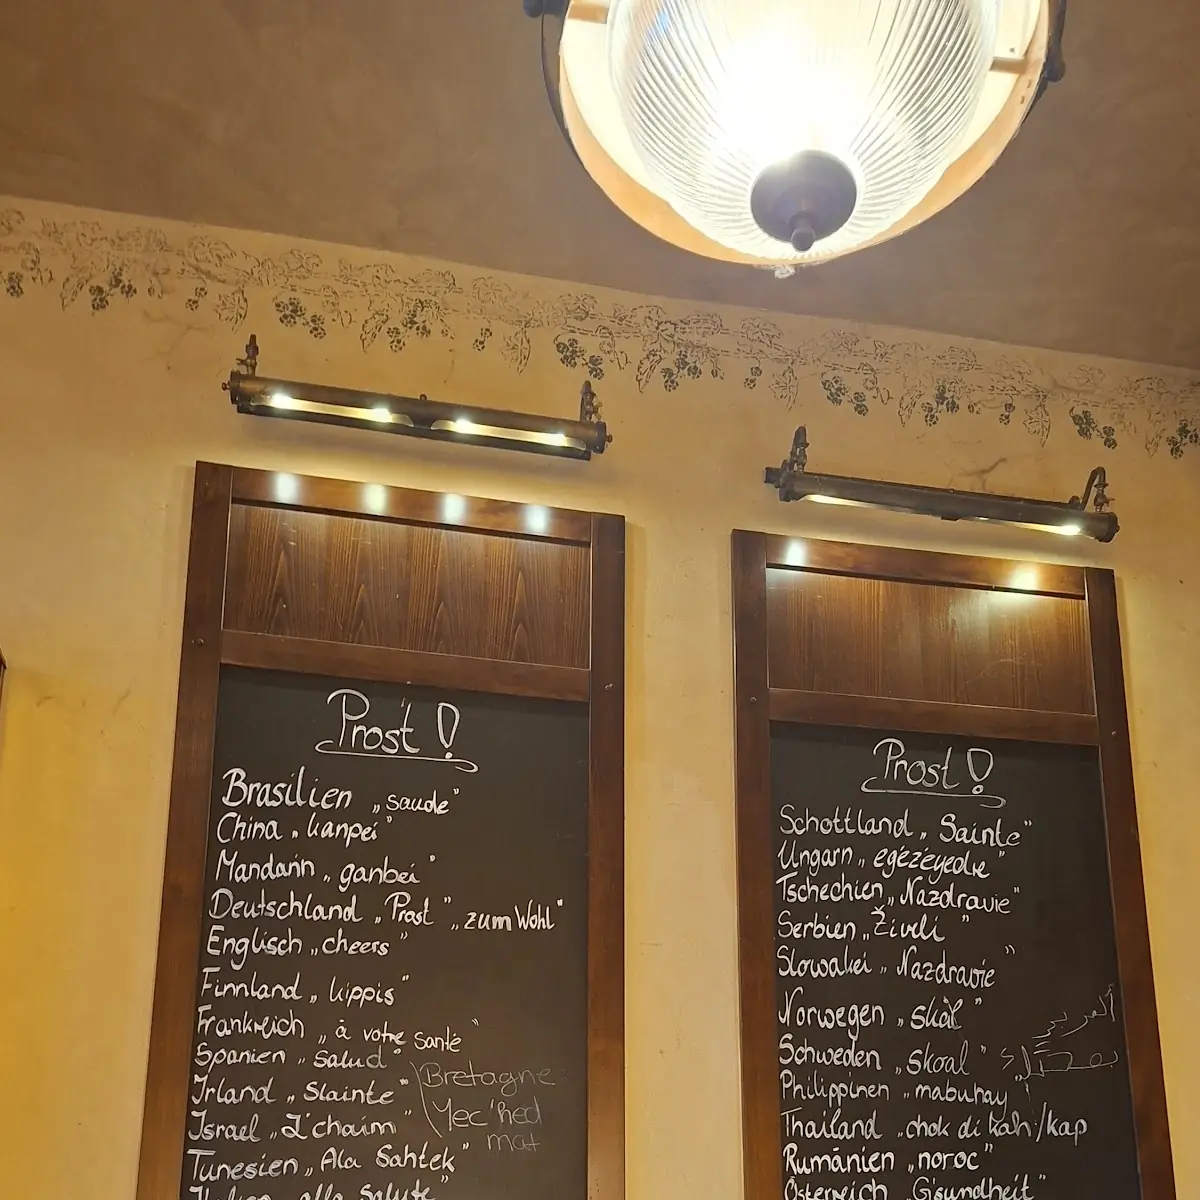 Prost!
Brasilien „saude"
China „kanpei"
Mandarin „ganbei"
Deutschland „Prost" „zum Wohl"
Englisch „cheers"
Finnland „kippis"
Frankreich „à votre santé"
Spanien „Salud"
Irland „Slainte"
Israel „L'chaim"
Tunesien „Ala Sahtek"
Italien „alla Salute"
Bretagne
Yec'hed
mat
Prost!
Schottland „Sainte"
Ungarn „egézéyedre"
Tschechien „Nazdravie"
Serbien „Živili"
Slowakei „Nazdravie"
Norwegen „skål"
Schweden „skoal"
Philippinen „mabuhay"
Thailand „chok di kah/kap
Rumänien „noroc"
Österreich „G'sundheit"